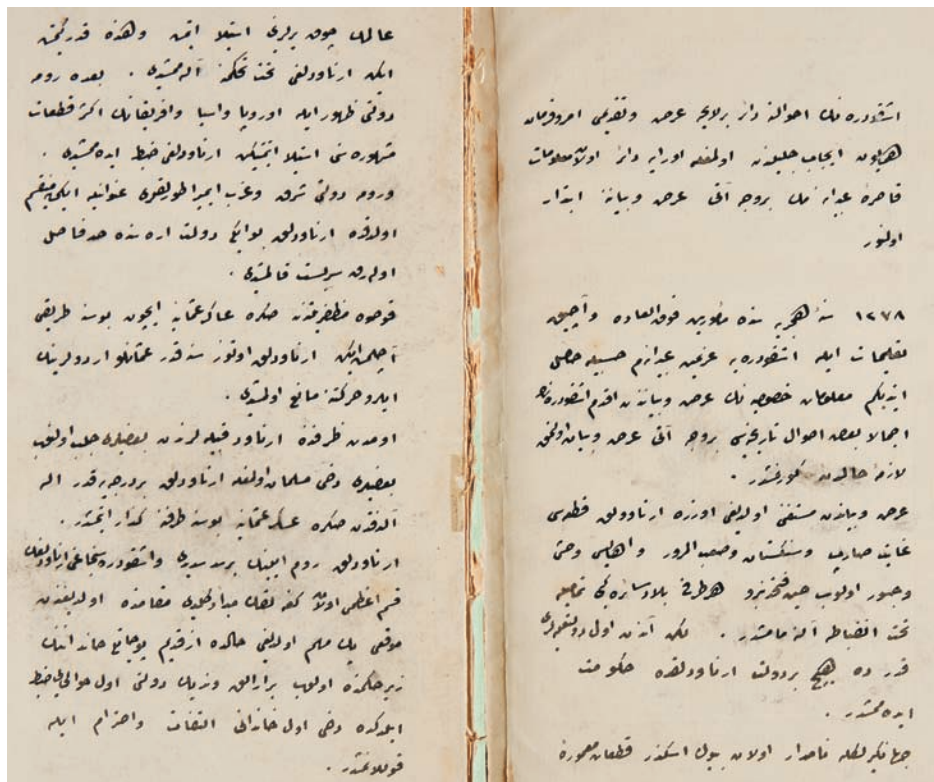 اشقودره نك احوالنه دائر برلايحه عرض وتقديمى امر وفرمان
همايون ايجاب جليلندن اولمغله اورايه دائر اولان معلومات
قاصرهٔ عبيدانه مك بروجه آتى عرض وبياننه ابتدار
اولنور
١٢٧٨ سنهٔ هجريه سنده مأمورين فوق العاده و آچيق
تعليمات ايله اشقودره يه عزيمت عبيدانه م حسبيله حاصل
ايتديكم معلومات خصوصيه نك عرض وبيانندن اقدم اشقودره نك
اجمالا بعض احوال تاريخيه سى بروجه آتى عرض وبيان اولنمق
لازمهٔ حالدن كورنمشدر .
عرض وبياندن مستغنى اولديغى اوزره ارناودلق قطعه سى
غايت صارپ وسنكستان وصعب المرور واهاليسى وحشى
وجسور اولوب حين فتحندنبرو هر طرفى بلاد سائره كبى تماميله
تحت انضباطه آلنه مامشدر . لكن آندن اول دولتلرينه
قدر ده هيچ بر دولت ارناودلقده حكومت
ايده ممشدر .
جهانكيرلكله نامدار اولان بيوك اسكندر قطعات معموره
عالمك چوق يرلرينى استيلا ايتمش وهنده قدر كيتمش
ايكن ارناودلغى تحت حكمنه آله ممشيدى . بعده روما
دولتى ظهور ايله اوروپا واسيا وافريقانك اكثر قطعات
مشهوره سنى استيلا ايتمشيكن ارناودلغى ضبط ايده ممشيدى .
وروما دولتى شرق وغرب ايمپراطورلقلرى عنوانيله ايكى يه منقسم
اولدقده ارناودلق بو ايكى دولت اره سنده حد فاصل
اوله رق سربست قالمشيدى .
قوصوه مظفريتندن صكره عساكر عثمانيه ايچون بوسنه طريقى
آچلمش ايكن ارناودلق اوتوز سنه قدر عثمانلو اردولرينك
ايلرو حركتنه مانع اولمشيدى .
اومدت ظرفنده ارناود قبيله لرندن بعضيلرى جلب اولنوب
بعضيلرى دخى مسلمان اولمغله ارناودلق بر درجه يه قدر اله
آلندقدن صكره عسكر عثمانيه بوسنه طرفنه كذار ايتمشدر .
ارناودلق روم ايلينك بر سد سديدى واشقودره سنجاغى ارناودلغك
قسم اعظمى اولان كغه لقك مبدأ وكليدى مقامنده اولديغندن
موقعى پك مهم اولديغى حالده از قديم بوجاتى خاندانينك
زير حكمنده اولوب بر ارالق ونديك دولتى اول حوالى يى ضبط
ايلدكده دخى اول خاندانى التفات واحترام ايله
قوللانمشدر .